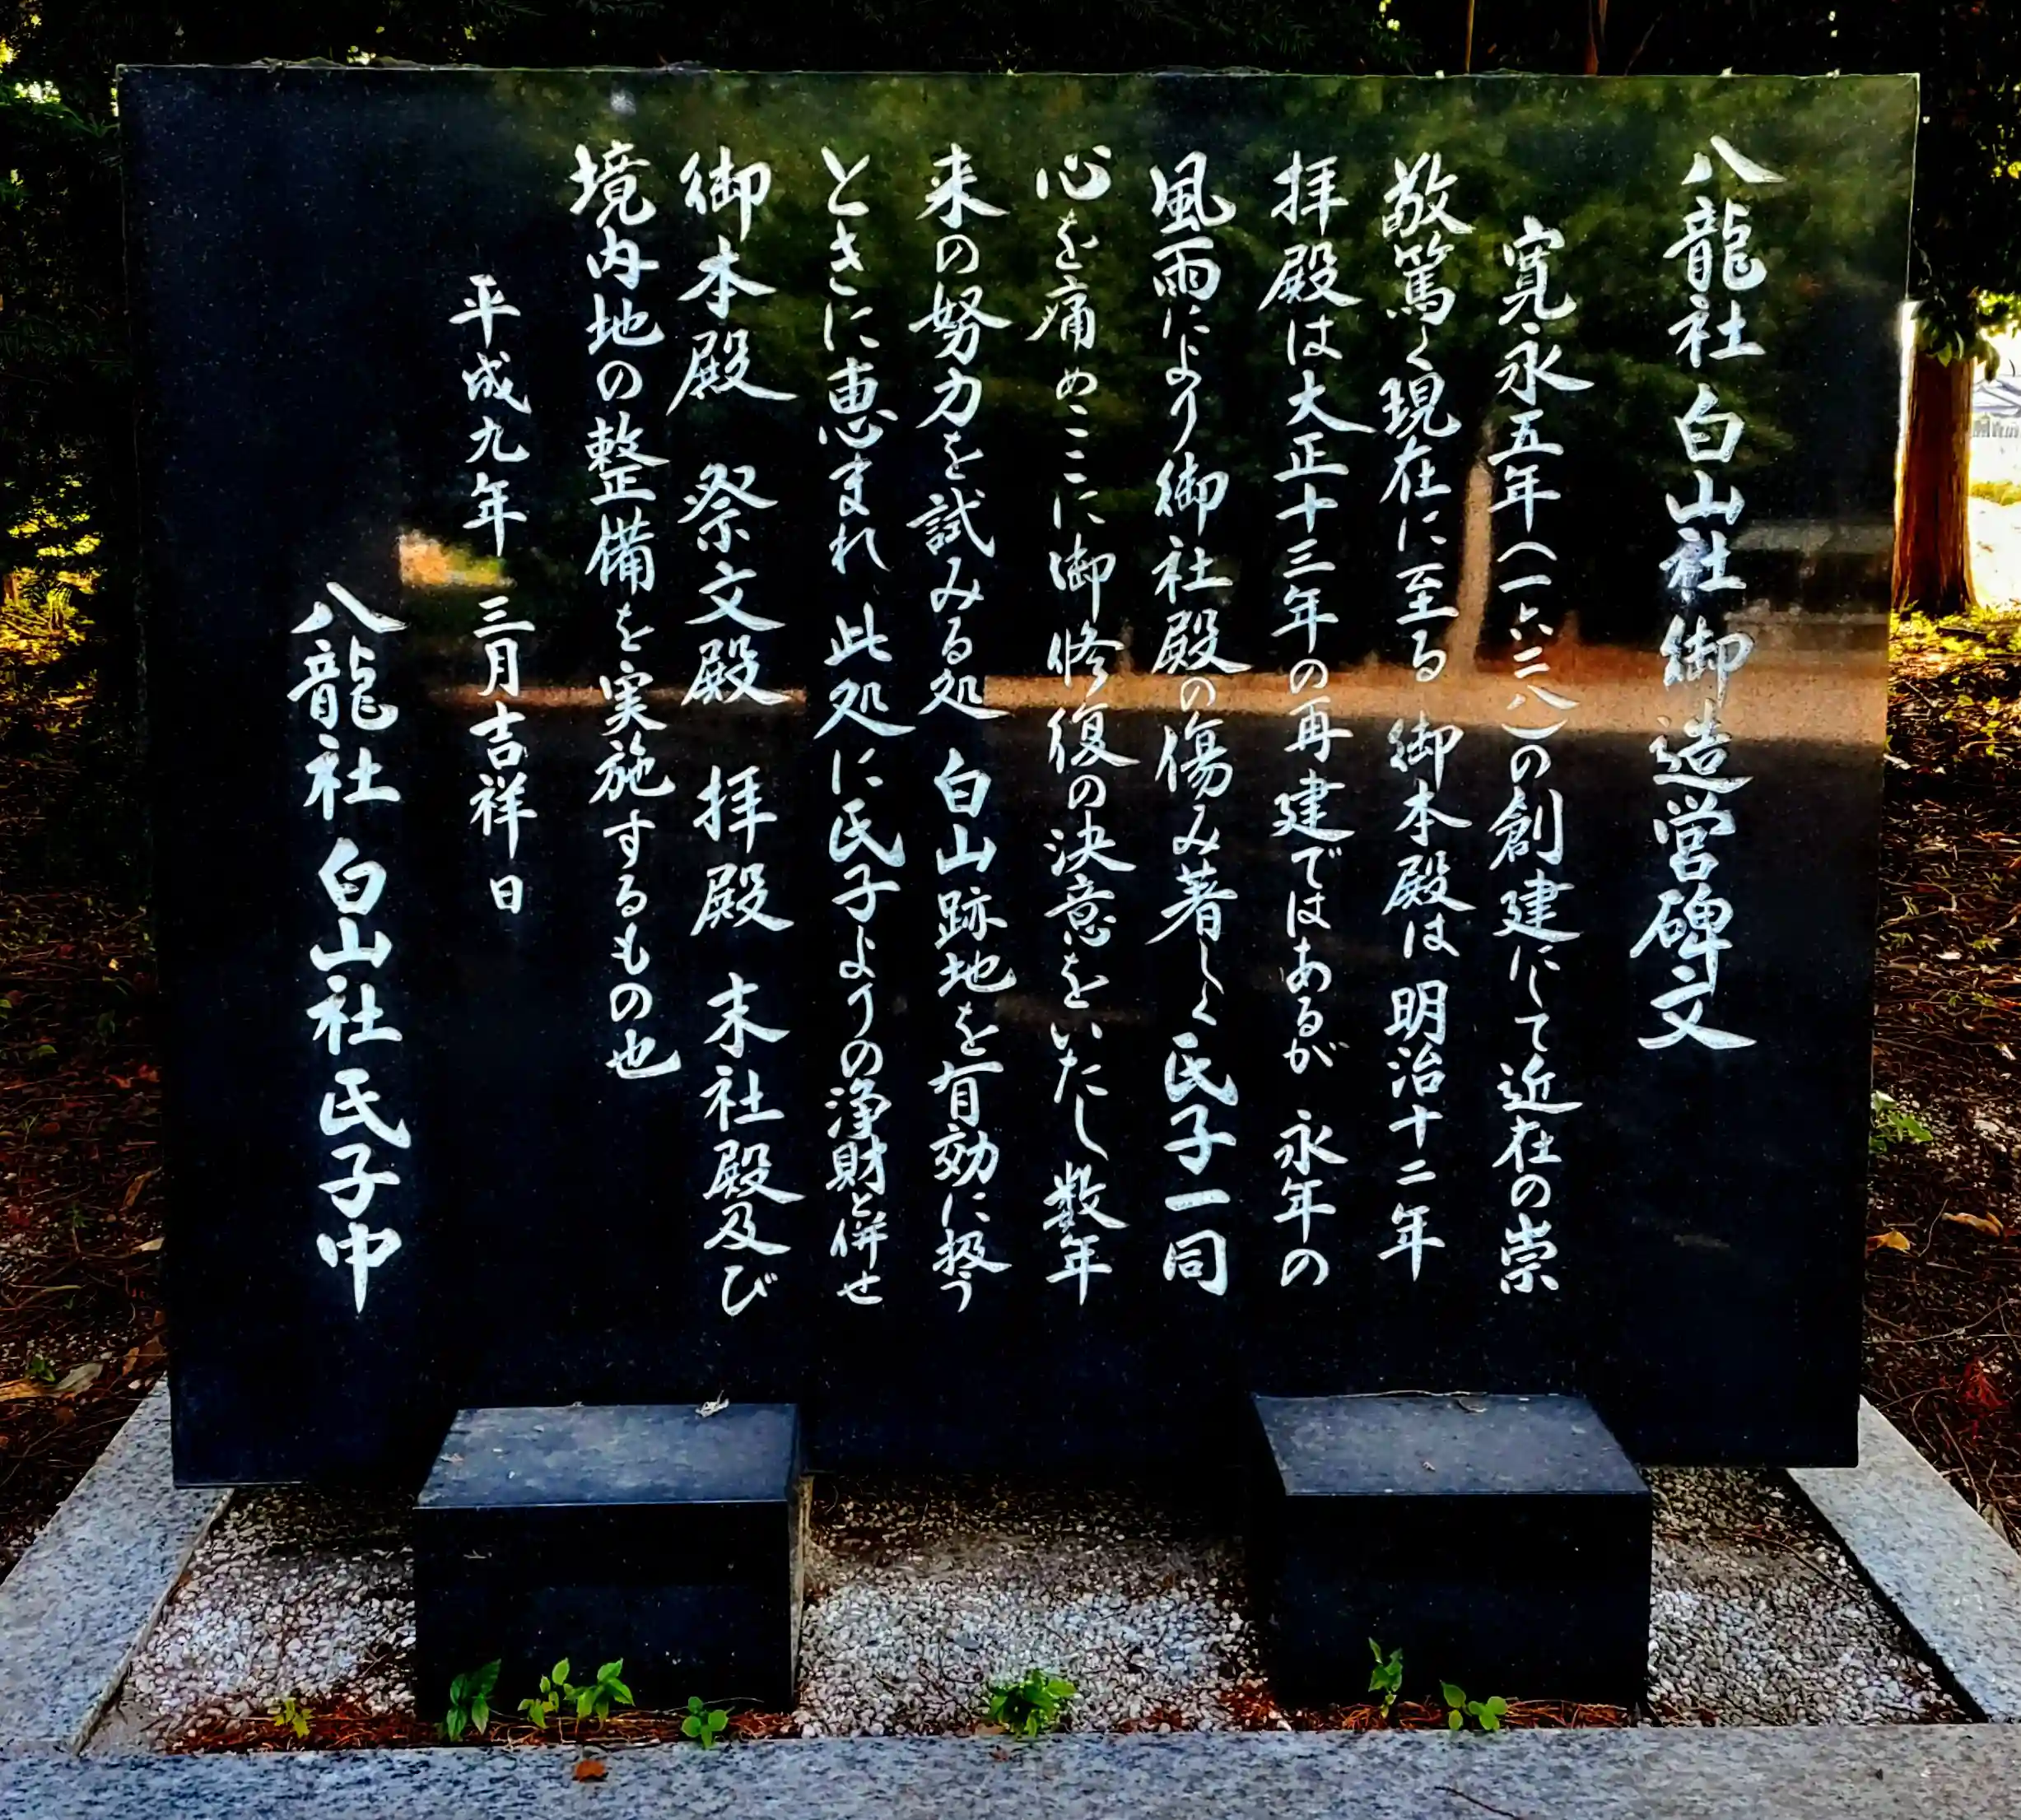 八龍社白山社御造営碑文
寛永五年(一六二八)の創建にして近在の崇
敬篤く現在に至る 御本殿は明治十二年
拝殿は大正十三年の再建ではあるが 永年の
風雨により御社殿の傷み著しく氏子一同
心を痛めここに御修復の決意をいたし数年
来の努力を試みる処 白山跡地を有効に扱う
ときに恵まれ 此処に氏子よりの浄財と併せ
御本殿 祭文殿 拝殿 末社殿及び
境内地の整備を実施するもの也
平成九年 三月吉祥日
八龍社 白山社 氏子中